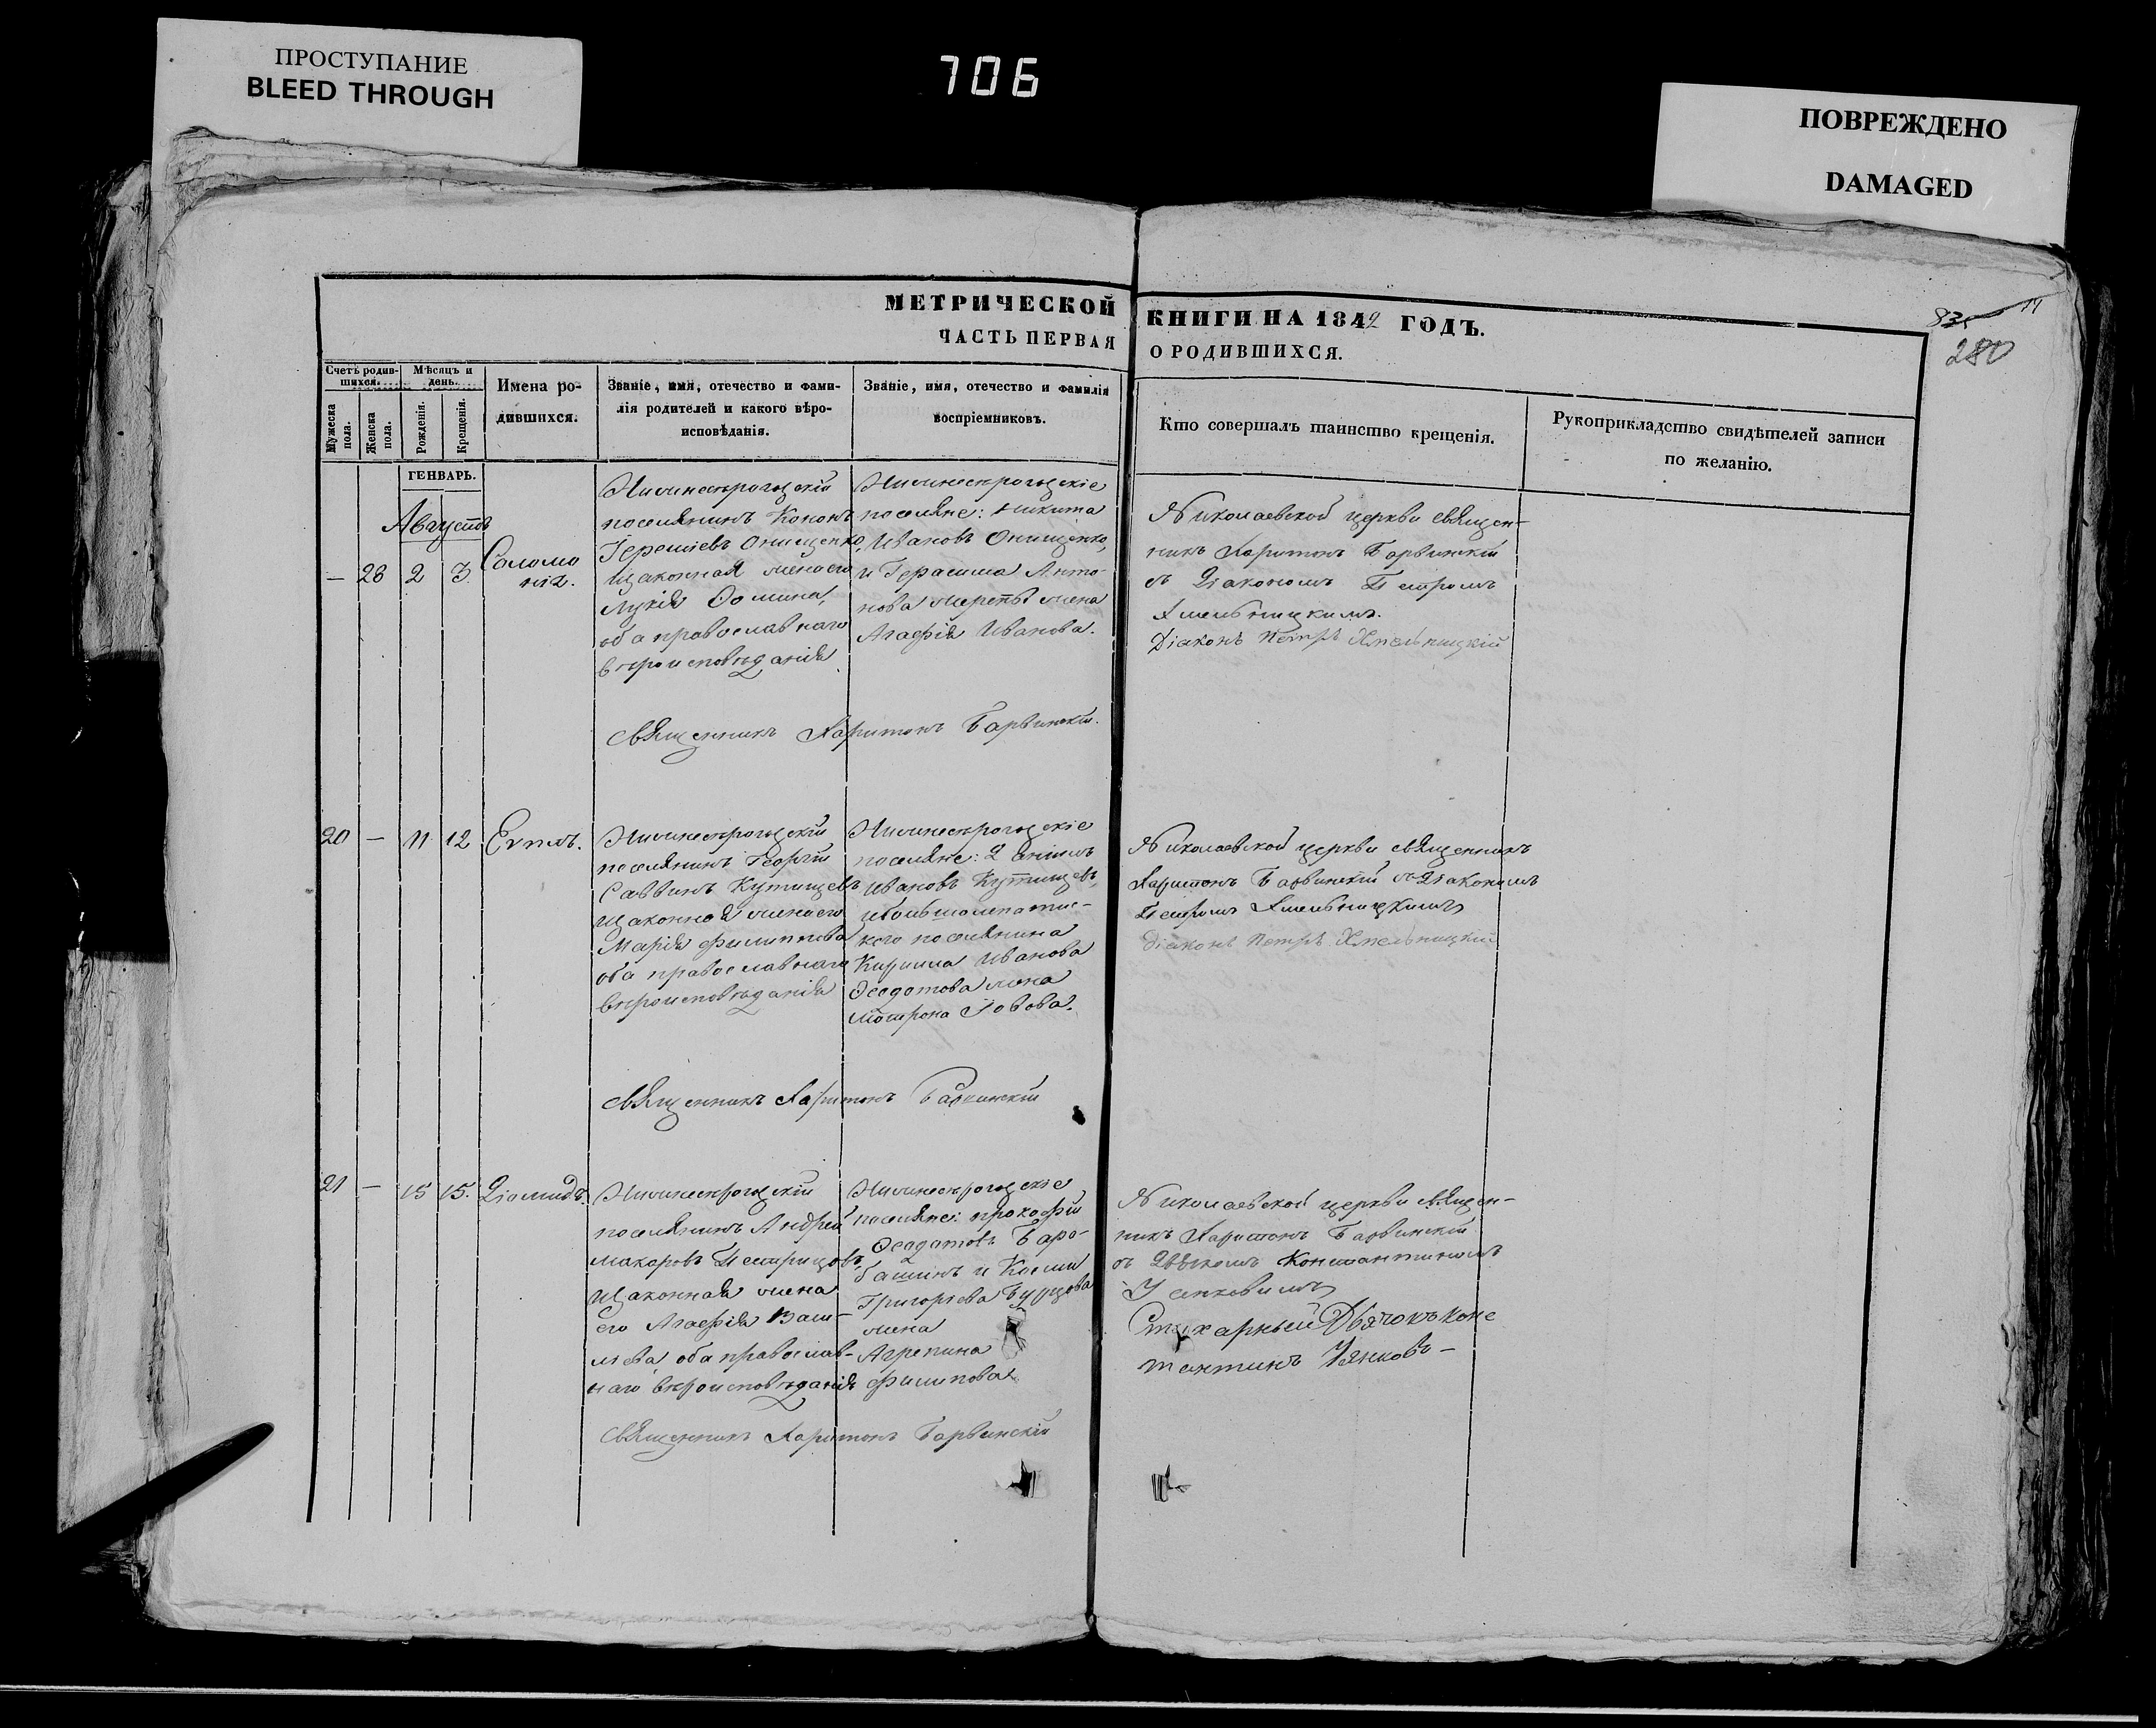 ПРОСТУПАНИЕ
BLEED THROUGH
706
ПОВРЕЖДЕНО
DAMAGED
МЕТРИЧЕСКОЙ КНИГИ НА 1842 ГОДЪ.
ЧАСТЬ ПЕРВАЯ О РОДИВШИХСЯ.
280
Счетъ родив-
шихся.
Мужеска пола.
Женска пола.
Мѣсяцъ и
день.
Рожденія.
Крещенія.
Имена ро-
дившихся.
Званіе, имя, отечество и фами-
лія родителей и какого вѣро-
исповѣданія.
Званіе, имя, отечество и фамилія
воспріемниковъ.
Кто совершалъ таинство крещенія.
Рукоприкладство свидѣтелей записи
по желанію.
ГЕНВАРЬ.
Августъ
— 26 2 3
Соломо
нія.
Нижнесѣрогозскій
поселянинъ Кононъ
Онищенко,
законная жена его
Лукія Ѳомина,
оба православнаго
вѣроисповѣданія
Нижнесѣрогозскіе
поселяне: Никита
Ивановъ Онищенко,
и Герасима Анто-
нова жена
Агафія Иванова.
Николаевской церкви священ-
никъ Харитонъ Барвинскій
съ Діакономъ Петромъ
Хмельницкимъ.
Діаконъ Петръ Хмельницкій
Священникъ Харитонъ Барвинскій.
20 — 11 12
Нижнесѣрогозскій
поселянинъ Георгій
Саввинъ Кутищевъ
законная жена его
Марія Филиппова
оба православнаго
вѣроисповѣданія
Нижнесѣрогозскіе
поселяне: Даніилъ
Ивановъ Кутищевъ,
и большолепатис-
кого поселянина
Кирилла Иванова
Ѳеодотова жена
Мотрона Іовова.
Николаевской церкви священникъ
Харитонъ Барвинскій съ Діакономъ
Петромъ Хмельницкимъ
Діаконъ Петръ Хмельницкій
Священникъ Харитонъ Барвинскій
21 — 15 15. Діомидъ.
Нижнесѣрогозскій
поселянинъ Андрей
Макаровъ Петрищовъ,
законная жена
его Агафія Васи-
льева, оба православ-
наго вѣроисповѣданія
Нижнесѣрогозскіе
поселяне: Прокофій
Ѳеодотовъ Бара-
башинъ и Косми
Григорьева Бурцова
жена
Агрепина
Филипова.
Николаевской церкви священ-
никъ Харитонъ Барвинскій
съ Дьячкомъ Константиномъ
Стихарный Дьячокъ Конс
тантинъ
Священникъ Харитонъ Барвинскій